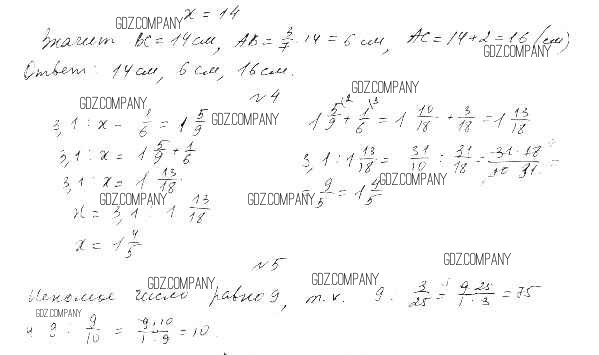 x = 14
GDZ.COMPANY
Значит BC = 14 см, AB = 3/7 · 14 = 6 см, AC = 14 + 2 = 16 (см)
GDZ.COMPANY
Ответ: 14 см, 6 см, 16 см.
№4
GDZ.COMPANY GDZ.COMPANY
3,1 : x - 1/6 = 1 5/9
GDZ.COMPANY
3,1 : x = 1 5/9 + 1/6
3,1 : x = 1 13/18
GDZ.COMPANY
x = 3,1 : 1 13/18
x = 1 4/5
1 5/9 + 1/6 = 1 10/18 + 3/18 = 1 13/18
3,1 : 1 13/18 = 31/10 : 31/18 = 31 · 18 / 10 · 31 =
GDZ.COMPANY
= 9/5 = 1 4/5
GDZ.COMPANY
№5
GDZ.COMPANY
GDZ.COMPANY GDZ.COMPANY
Искомое число равно 9, т.к. 9 : 3/25 = 9 · 25 / 1 · 3 = 75
GDZ.COMPANY
и 9 : 9/10 = 9 · 10 / 1 · 9 = 10.